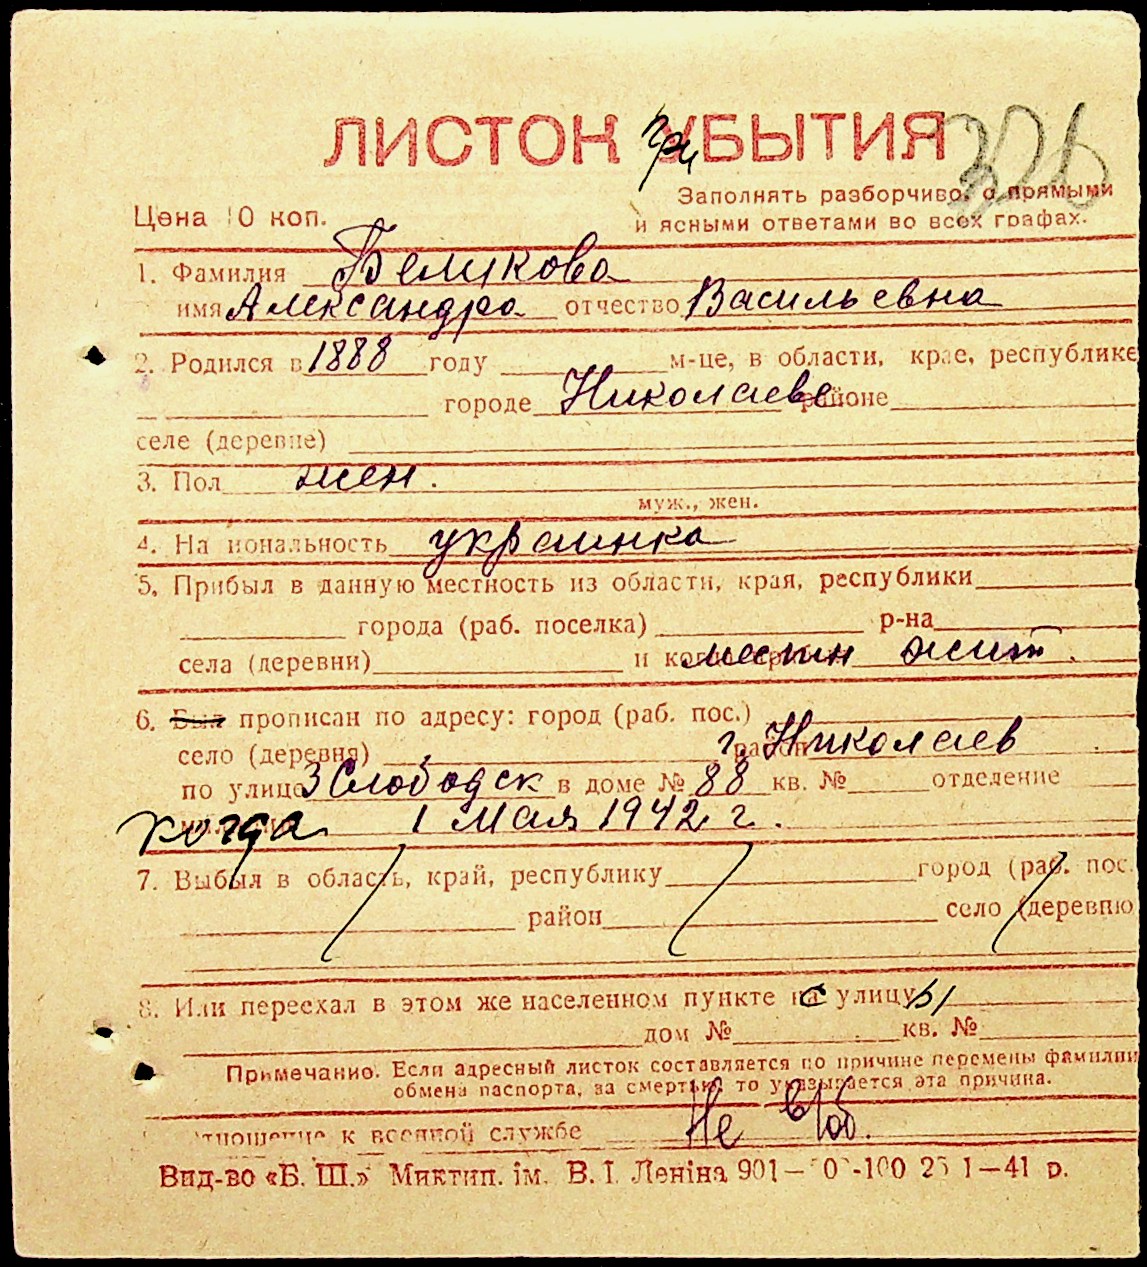 ЛИСТОК прИБЫТИЯ
326
Заполнять разборчиво, с прямыми
и ясными ответами во всех графах.
Цена 10 коп.
1. Фамилия Беликова
имя Александра отчество Васильевна
2. Родился в 1888 году м-це, в области, крае, республике
городе Николаеве районе
селе (деревне)
3. Пол жен.
муж., жен.
4. Национальность украинка
5. Прибыл в данную местность из области, края, республики
города (раб. поселка) р-на
села (деревни) и когда местн жит.
6. Был прописан по адресу: город (раб. пос.)
село (деревня) г. Николаев район
по улице 3 Слободск в доме № 88 кв. № отделение
когда 1 мая 1942 г.
7. Выбыл в область, край, республику город (раб. пос.
район село (деревню
8. Или переехал в этом же населенном пункте с улицы
дом № кв. №
Примечание. Если адресный листок составляется по причине перемены фамилии
обмена паспорта, за смертью, то указывается эта причина.
отношение к военной службе Не в/об.
Вид-во «Б. Ш.» Миктип. ім. В. І. Леніна 901— 0 -100 25 1—41 р.